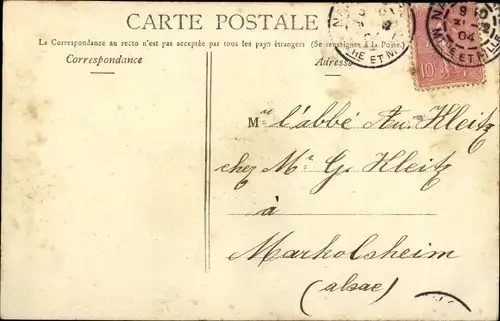 CARTE POSTALE
La Correspondance au recto n'est pas acceptée par tous les pays étrangers (Se renseigner à la Poste.)
Correspondance
Adresse
10
04
Mr l'abbé Au. Kleitz
chez Mr G. Kleitz
à
Markolsheim
(alsace)